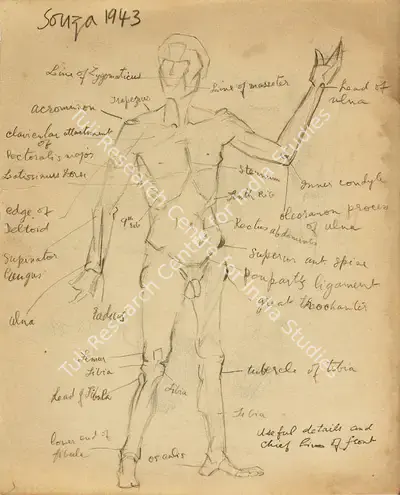 Souza 1943
Line of Zygomaticus
Line of masseter
Trapezius
Head of
ulna
acromion
clavicular attachment
of
Pectoralis major
Latissimus Dorsi
Sternum
Inner condyle
edge of
Deltoid
9th Rib
olecranon process
of ulna
Rectus abdominis
Supinator
Longus
Superus ant spine
Pouparts ligament
great trochanter
ulna
Radius
Femur
Tibia
tubercle of tibia
Head of Fibula
Tibia
Tibia
lower end of
fibula
os calcis
Useful details and
chief lines of front
Tuli Research Centre for India Studies